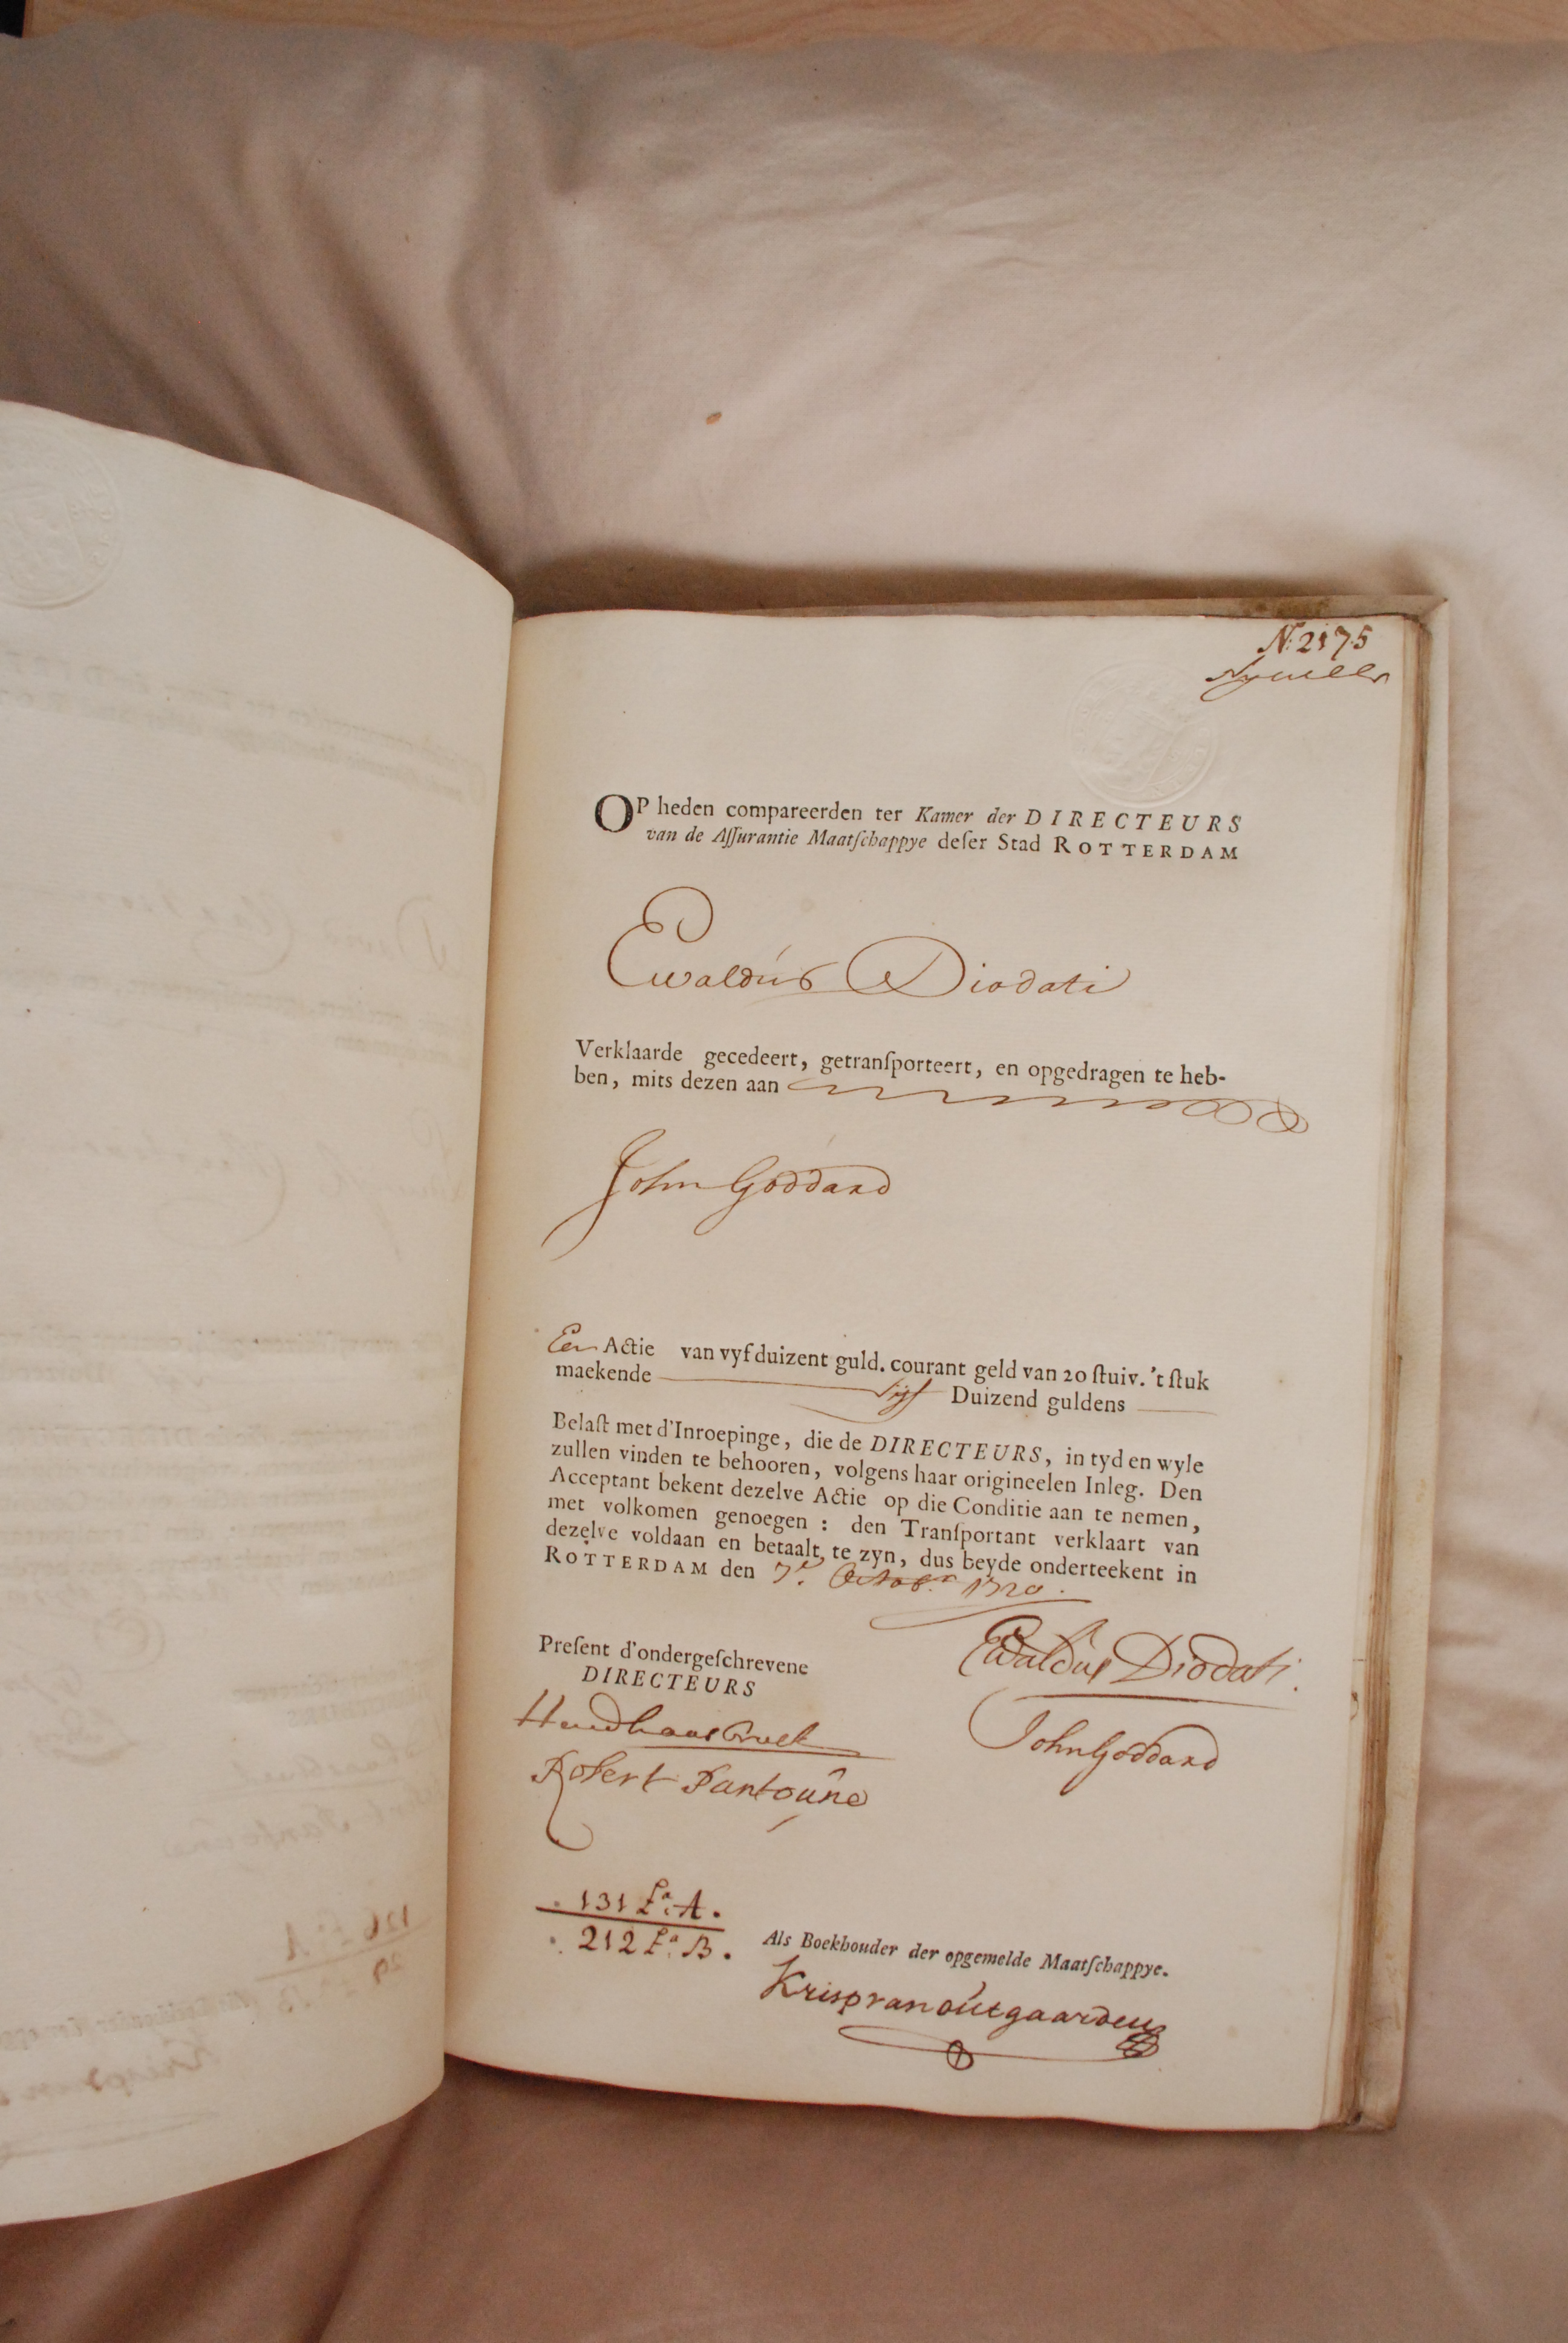 N:2175
OP heden compareerden ter Kamer der DIRECTEURS
van de Aſſurantie Maatſchappye deſer Stad ROTTERDAM
Ewaldus Diodati
Verklaarde gecedeert, getranſporteert, en opgedragen te heb-
ben, mits dezen aan
John Goddard
Een Actie van vyf duizent guld. courant geld van 20 ſtuiv. 't ſtuk
maekende Vijf Duizend guldens
Belaſt met d'Inroepinge, die de DIRECTEURS, in tyd en wyle
zullen vinden te behooren, volgens haar origineelen Inleg. Den
Acceptant bekent dezelve Actie op die Conditie aan te nemen,
met volkomen genoegen: den Tranſportant verklaart van
dezelve voldaan en betaalt te zyn, dus beyde onderteekent in
ROTTERDAM den 7e. Octobr. 1720.
Ewaldus Diodati.
Preſent d'ondergeſchrevene
DIRECTEURS
John Goddard
Robert Santoúne
131 La. A.
212 La. B.
Als Boekhouder der opgemelde Maatſchappye.
Krisp van oútgaarden